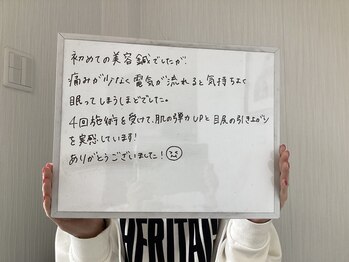 初めての美容鍼でしたが、
痛みが少なく電気が流れると気持ちよく
眠ってしまうほどでした。
4回施術を受けて、肌の弾力UPと目尻の引き上がり
を実感しています!
ありがとうございました!
HERITAG